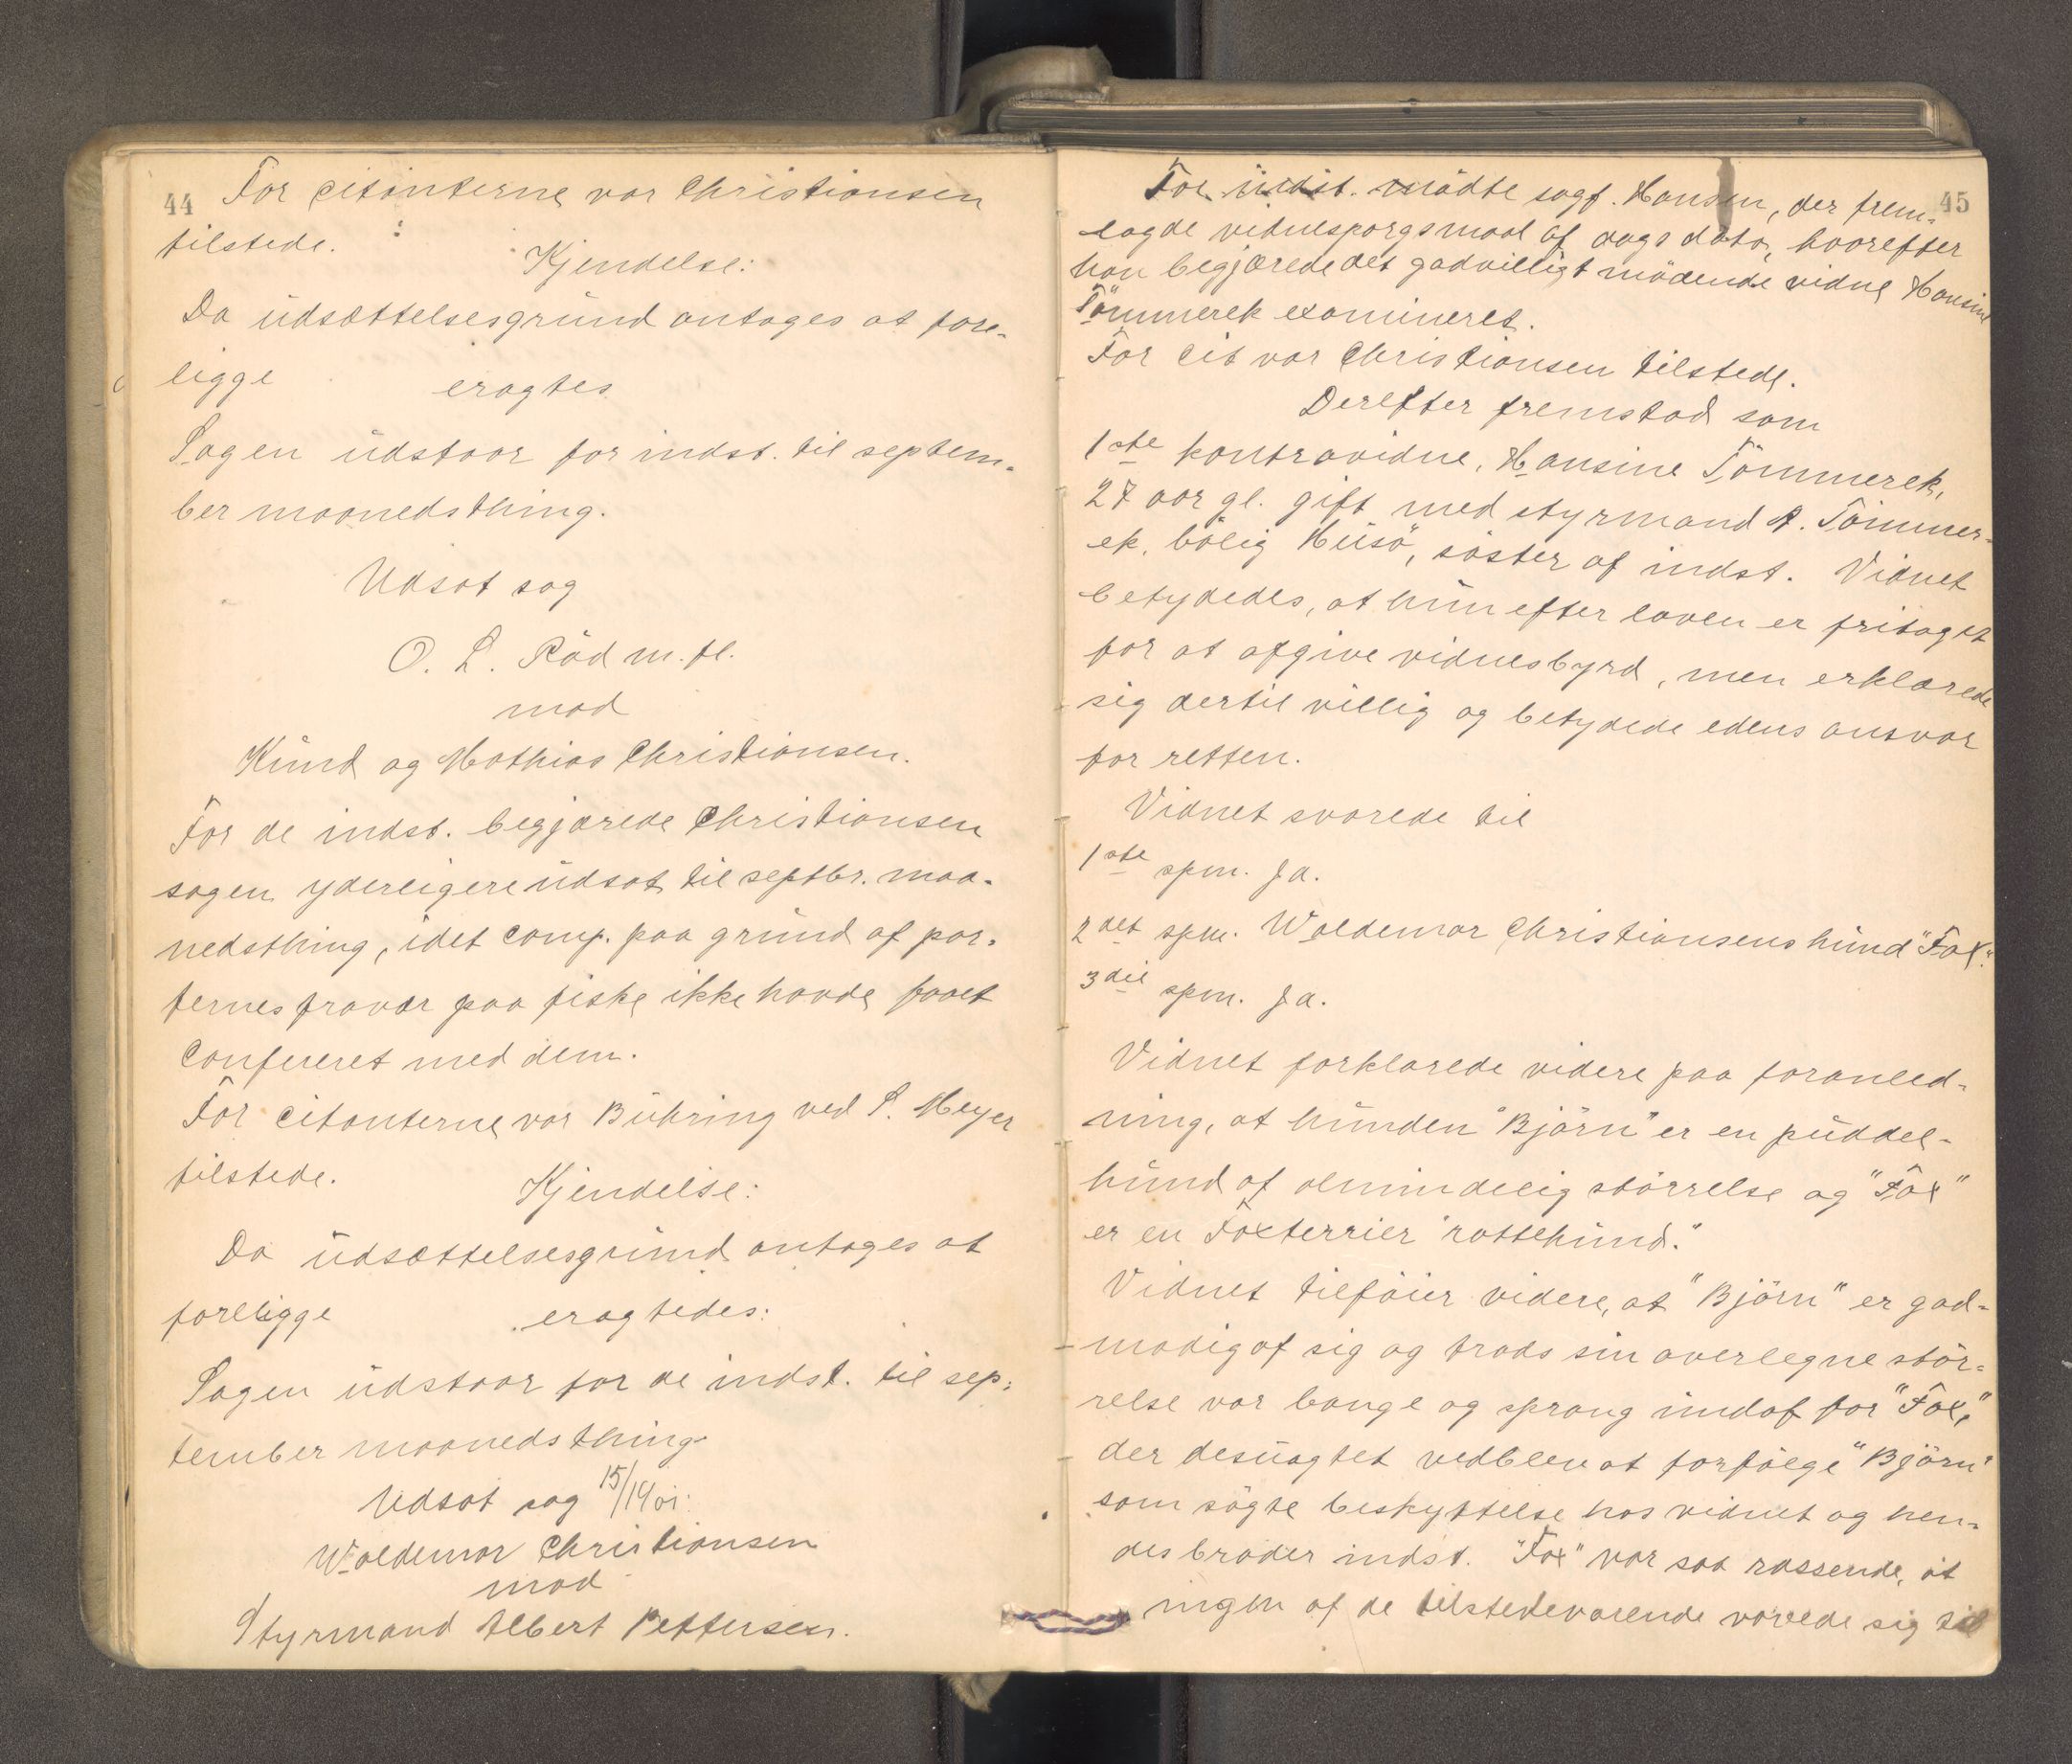 44
For citanterne var Christiansen
tilstede.
Kjendelse:
Da udsættelsesgrund antages at fore-
ligge eragtes
Sagen udstaar for indst. til septem-
ber maanedsthing.
Udsat sag
O. L. Röd m. fl.
mod
Knud og Mathias Christiansen.
For de indst. begjærede Christiansen
sagen yderligere udsat til septbr. maa-
nedsthing, idet comp. paa grund af par-
ternes fravær paa fiske ikke havde faaet
confereret med dem.
For citanterne var Bühring ved S. Meyer
tilstede.
Kjendelse:
Da udsættelsesgrund antages at
foreligge eragtedes:
Sagen udstaar for de indst. til sep-
tember maanedsthing
Udsat sag 15/1901:
Waldemar Christiansen
mod
Styrmand Albert Pettersen.
45
For indst. mödte sagf. Hansen, der frem-
lagde vidnespørgsmaal af dags dato, hvorefter
han begjærede det godvilligt mödende vidne Hansine
Tömmerek examineret.
For cit var Christiansen tilstede.
Derefter fremstod som
1ste kontravidne, Hansine Tömmerek,
27 aar gl. gift med styrmand A. Tömmer-
ek, bolig Husö, söster af indst. Vidnet
betydedes, at hun efter loven er fritaget
for at afgive vidnesbyrd, men erklærede
sig dertil villig og betydede edens ansvar
for retten.
Vidnet svarede til
1ste spm. Ja.
2det spm. Waldemar Christiansens hund "Fox".
3die spm. Ja.
Vidnet forklarede videre paa foranled-
ning, at hunden "Björn" er en puddel-
hund af almindelig störrelse og "Fox"
er en Foxterrier "rottehund."
Vidnet tilföier videre, at "Björn" er god-
modig af sig og trods sin overlegne stör-
relse var bange og sprang undaf for "Fox,"
der desuagtet vedblev at forfölge "Björn"
som sögte beskyttelse hos vidnet og hen-
des broder indst. "Fox" var saa rassende, at
ingen af de tilstedeværende vovede sig til